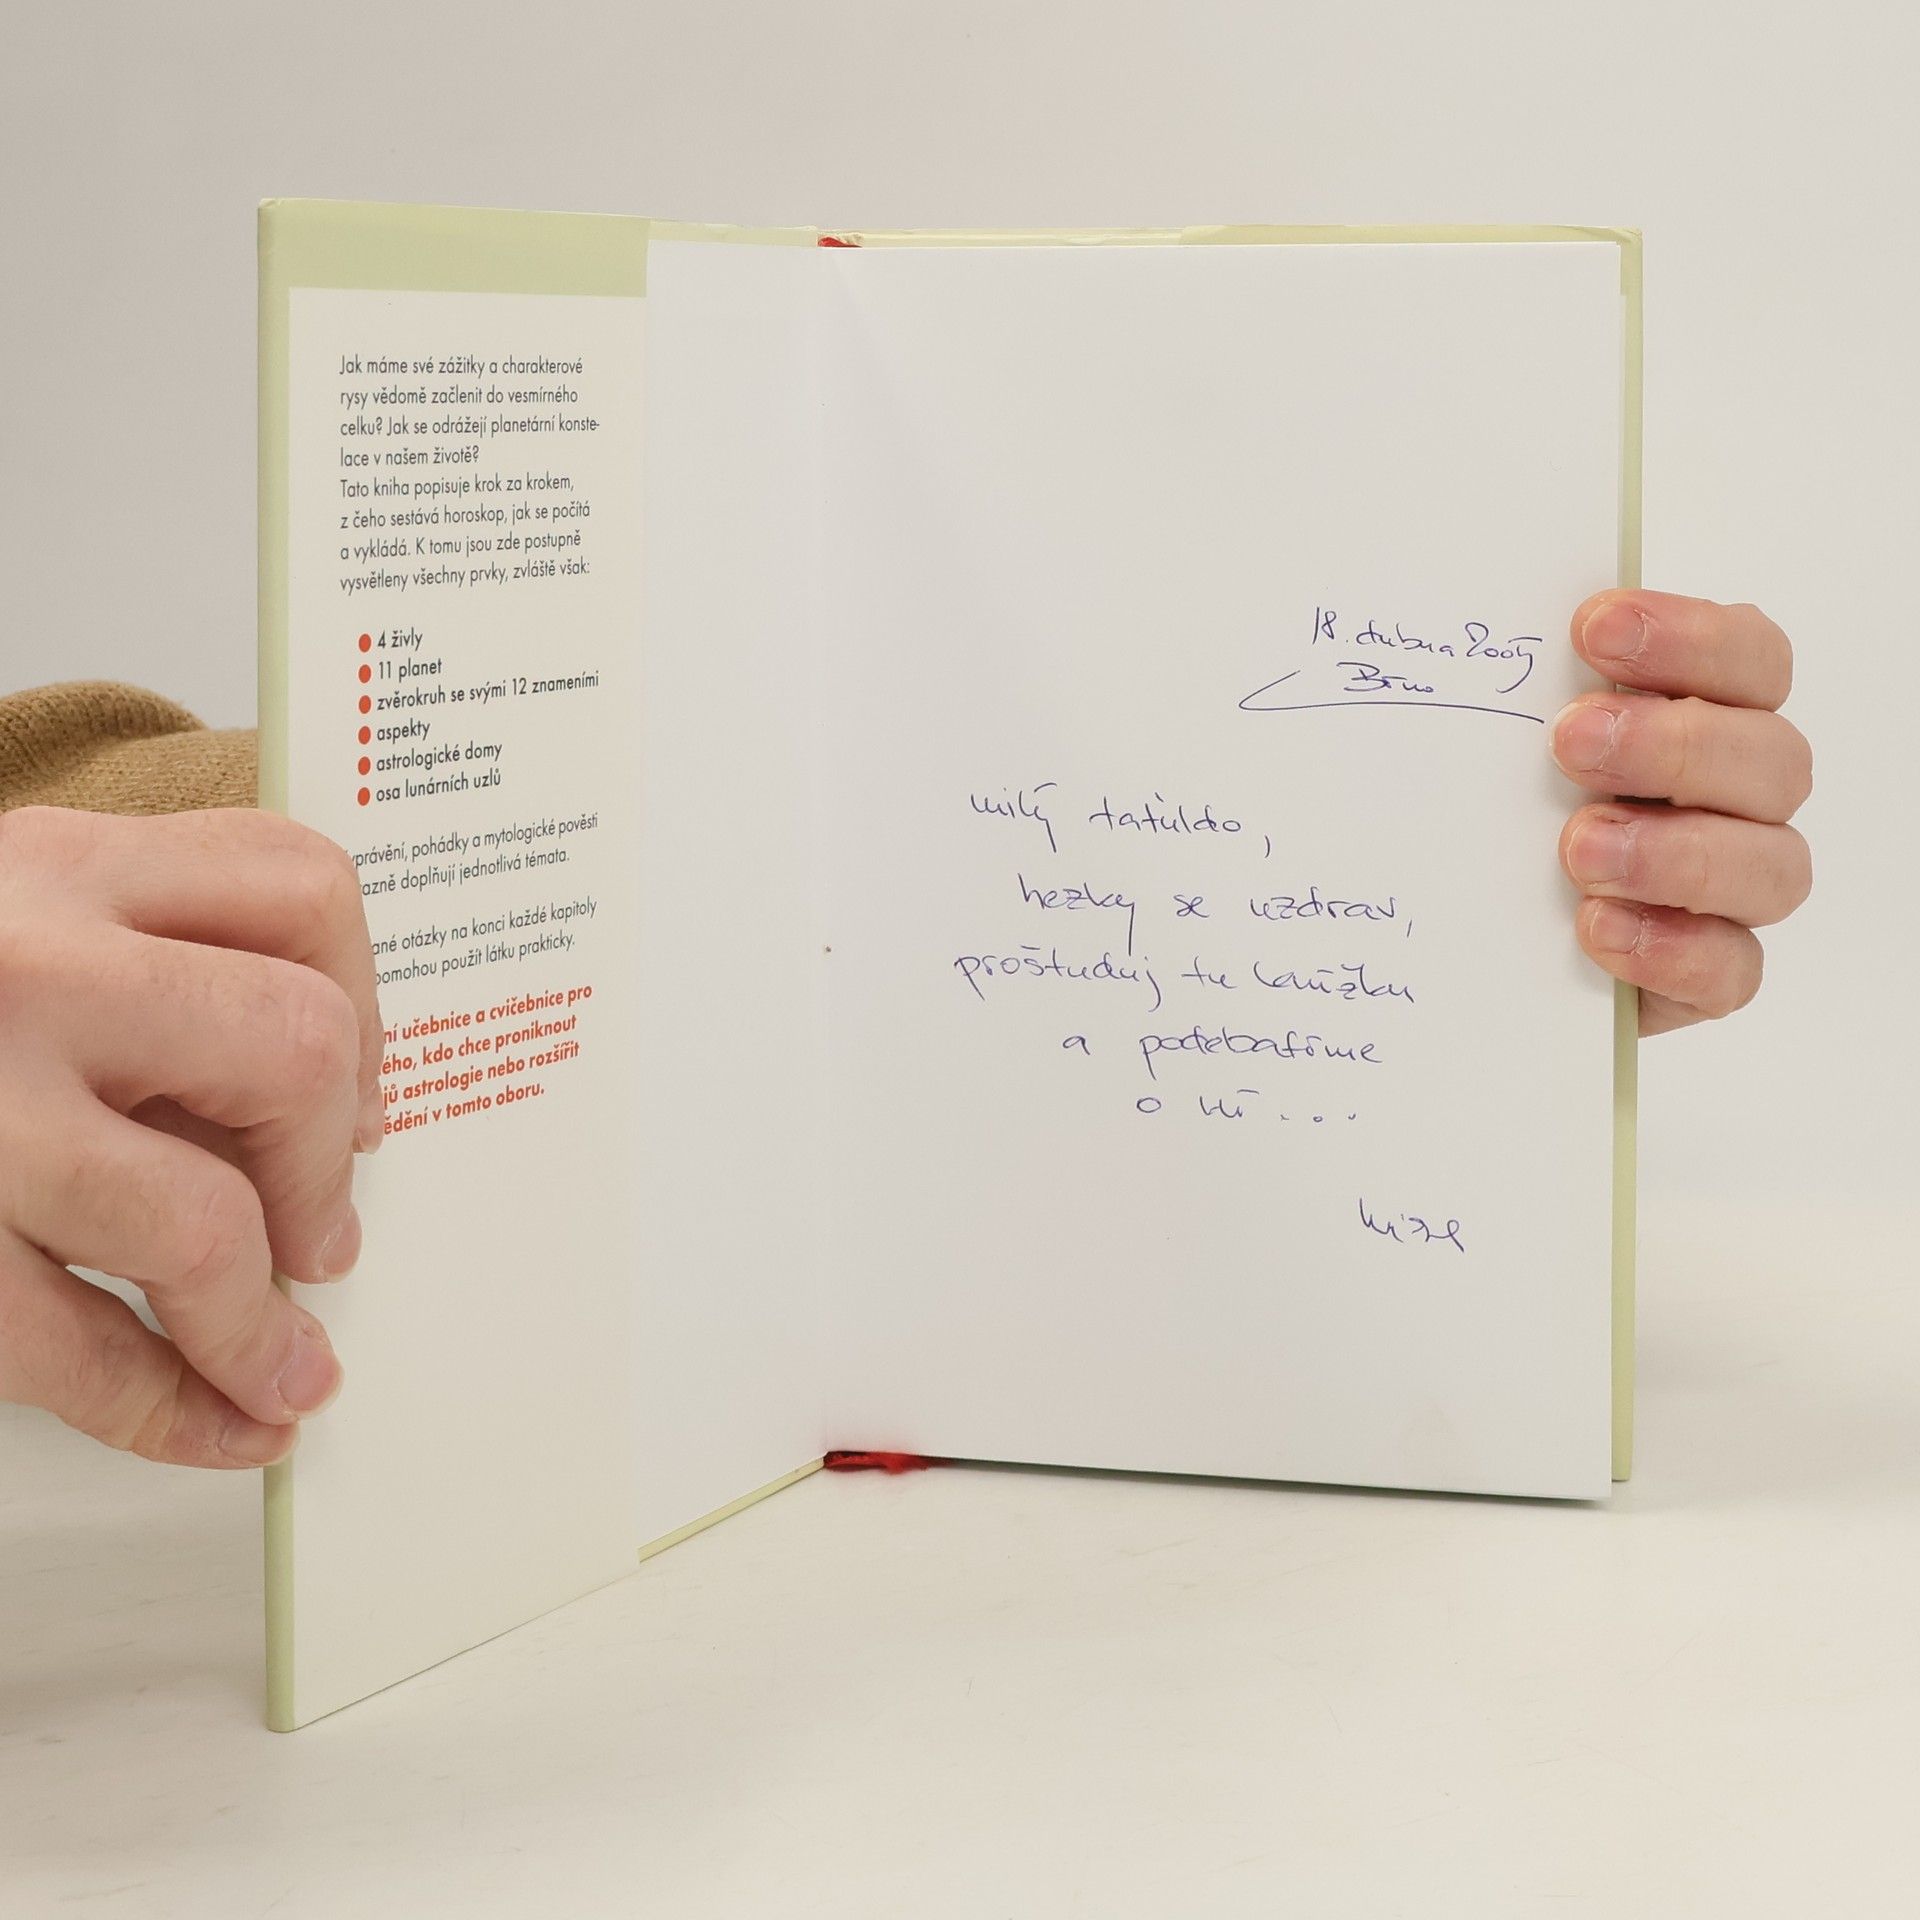 Jak máme své zážitky a charakterové
rysy vědomě začlenit do vesmírného
celku? Jak se odrážejí planetární konste-
lace v našem životě?
Tato kniha popisuje krok za krokem,
z čeho sestává horoskop, jak se počítá
a vykládá. K tomu jsou zde postupně
vysvětleny všechny prvky, zvláště však:
4 živly
11 planet
zvěrokruh se svými 12 znameními
aspekty
astrologické domy
osa lunárních uzlů
yprávění, pohádky a mytologické pověsti
azně doplňují jednotlivá témata.
ané otázky na konci každé kapitoly
pomohou použít látku prakticky.
ní učebnice a cvičebnice pro
ého, kdo chce proniknout
jů astrologie nebo rozšířit
ědění v tomto oboru.
18. dubna
Brno
milý taťuldo,
hezky se uzdrav,
proštuduj tu knížku
a podebatíme
o ní...